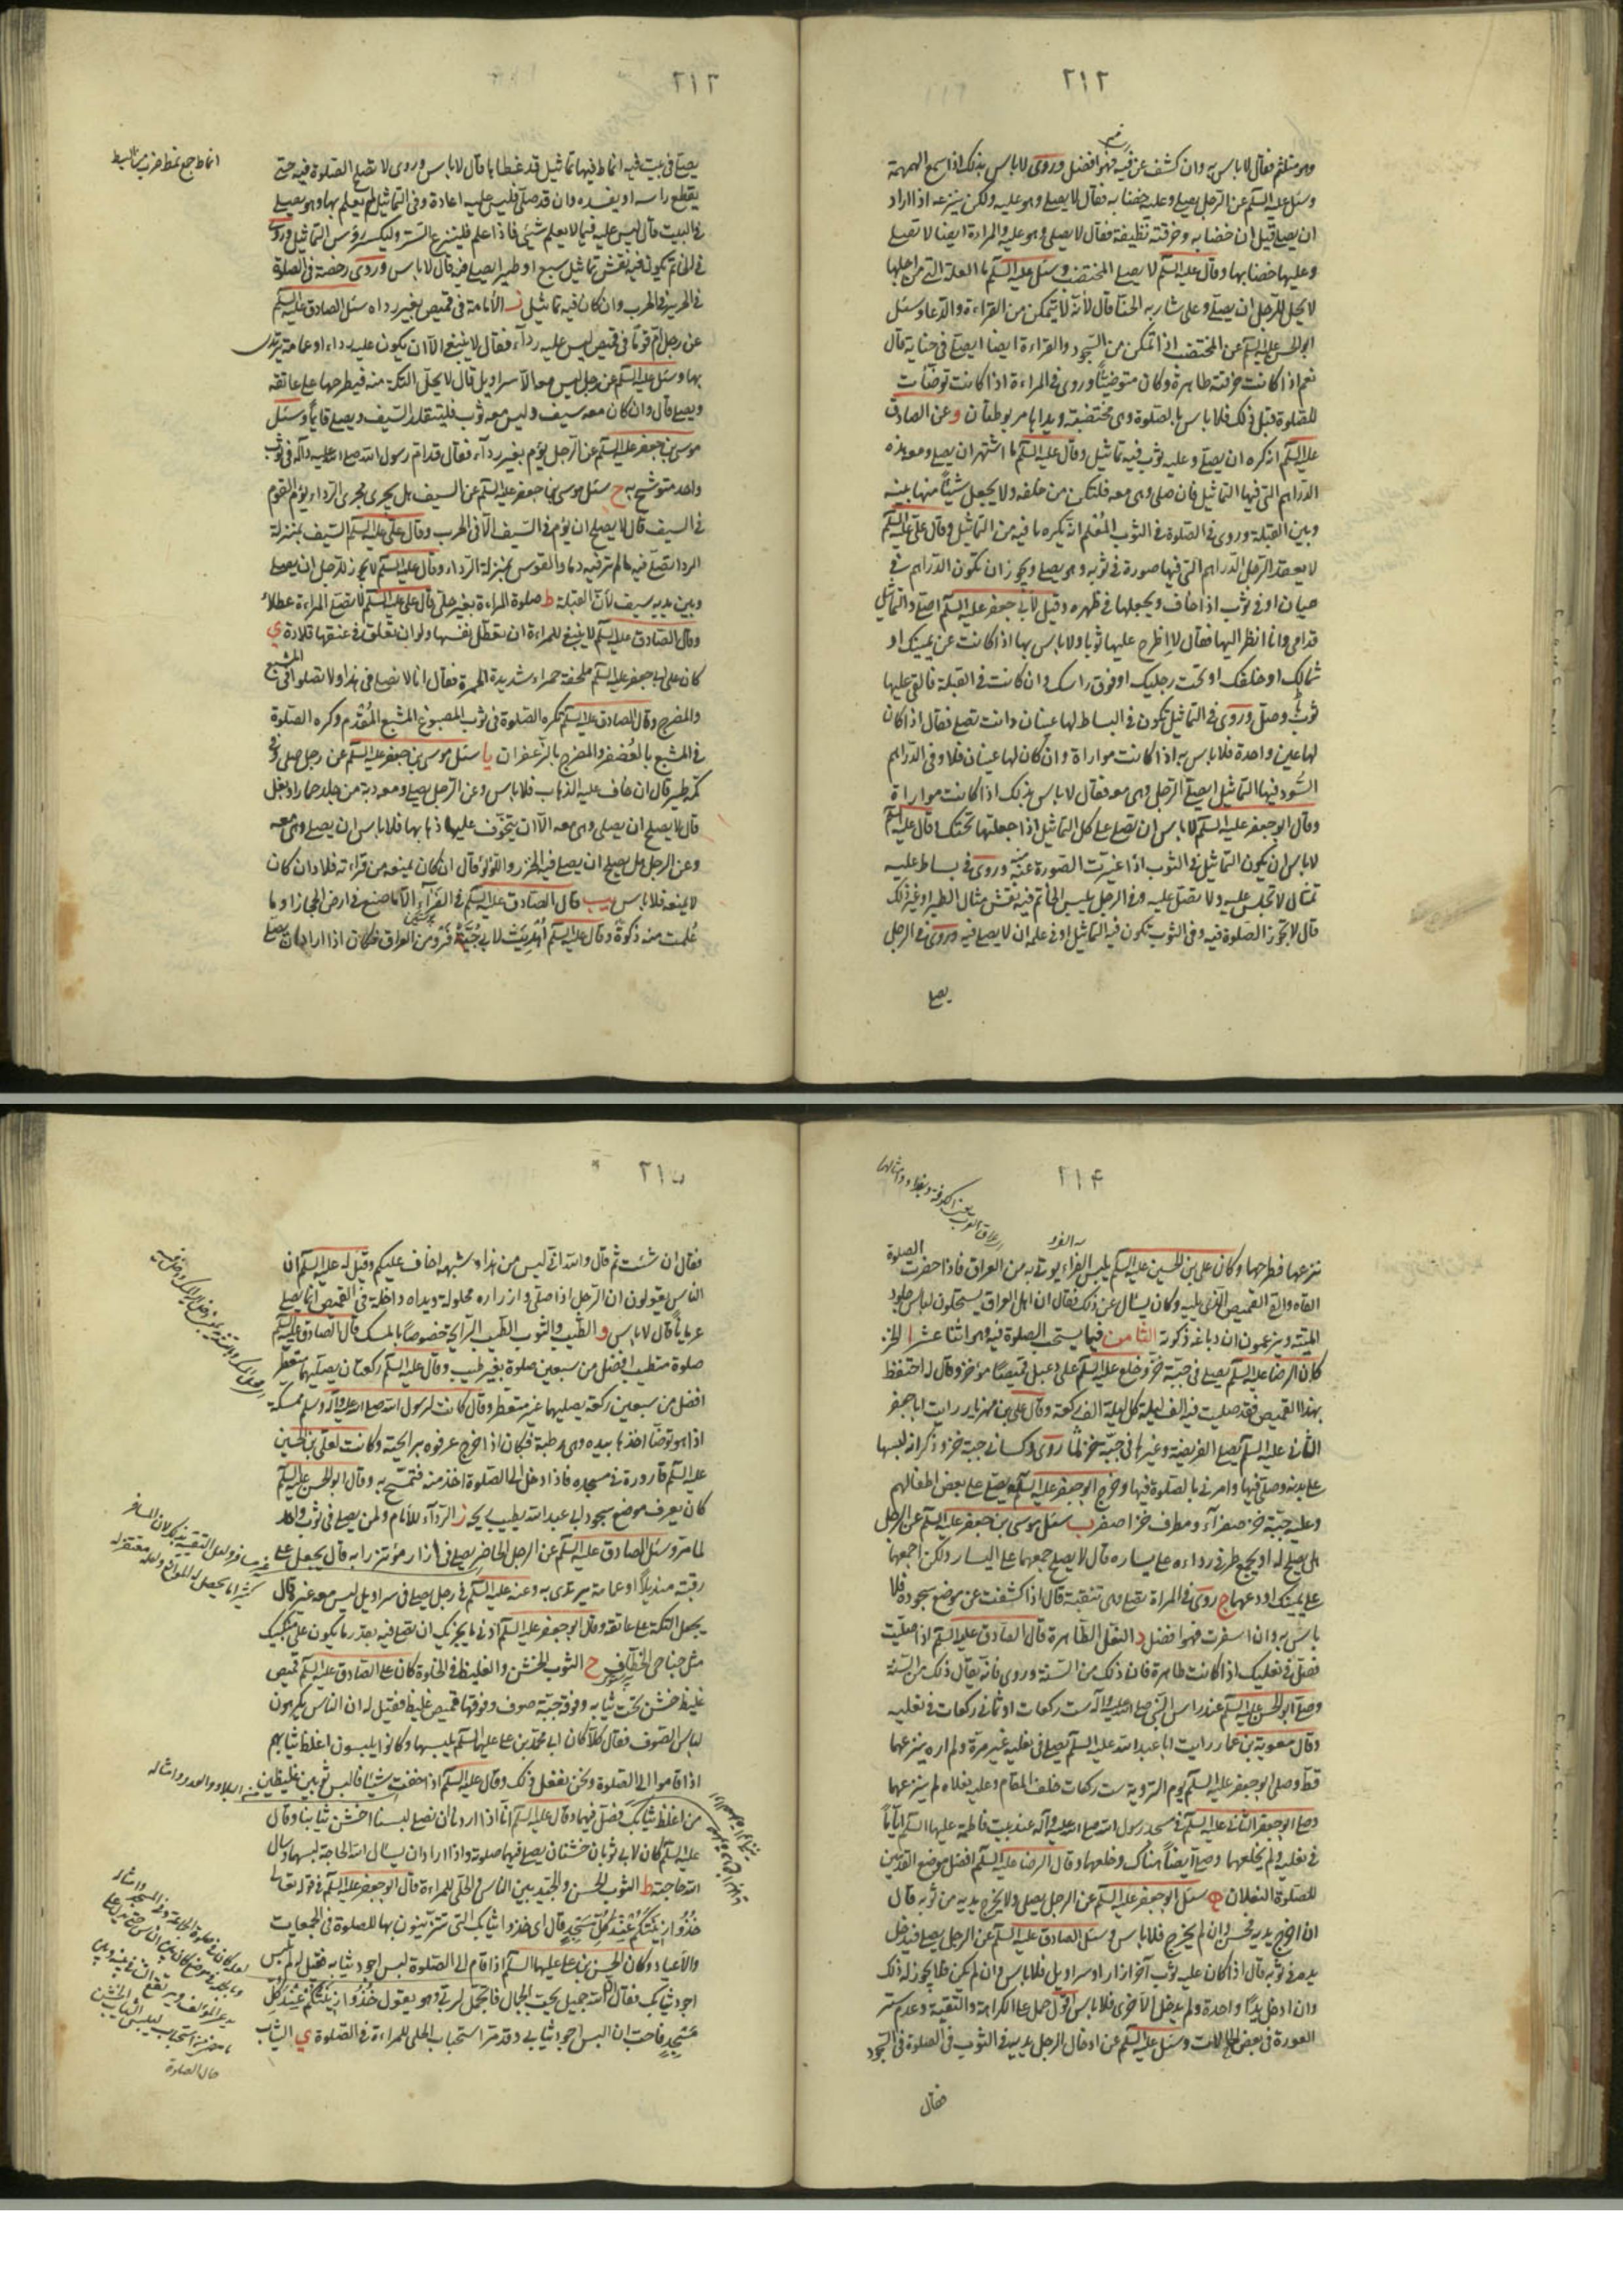 ٢١٢
وهو متلثم فقال لا باس به وان كشف عن فيه فهو افضل وروى لا باس بذلك اذا سمع الهمهمة
وسئل عليه السلم عن الرجل يصلى وعليه خضابه فقال لا يصلى وهو عليه ولكن ينزعه اذا اراد
ان يصلى قيل ان خضابه وخرقته نظيفة فقال لا يصلى وهو عليه والمراة ايضا لا تصلى
وعليها خضابها وقال عليه السلم لا يصلى المختضب وسئل عليه السلم ما العلة التى من اجلها
لا يحل للرجل ان يصلى وعلى شاربه الحنا قال لانه لا يتمكن من القراءة والدعا وسئل
ابو الحسن عليه السلم عن المختضب اذا تمكن من السجود والقراءة ايضا ايصلى فى حنائه قال
نعم اذا كانت خرقته طاهرة وكان متوضيا وروى فى المراءة اذا كانت توضأت
للصلوة قبل ذلك فلا باس بالصلوة وهى مختضبة ويداها مربوطتان و عن الصادق
عليه السلم انه كره ان يصلى وعليه ثوب فيه تماثيل وقال عليه السلم ما اشتهى ان يصلى ومعه هذه
الدراهم التى فيها التماثيل فان صلى وهى معه فلتكن من خلفه ولا يجعل شيئا منها بينه
وبين القبلة وروى فى الصلوة فى الثوب المعلم انه يكره ما فيه من التماثيل وقال على عليه السلم
لا يعقد الرجل الدراهم التى فيها صورة فى ثوبه وهو يصلى ويجوز ان تكون الدراهم فى
هميان او فى ثوب اذا خاف ويجعلها فى ظهره وقيل لابى جعفر عليه السلم اصلى والتماثيل
قدامى وانا انظر اليها فقال لا اطرح عليها ثوبا ولا باس بها اذا كانت عن يمينك او
شمالك او خلفك او تحت رجليك او فوق راسك وان كانت فى القبلة فالق عليها
ثوبا وصل وروى فى التماثيل تكون فى البساط لها عينان وانت تصلى فقال اذا كان
لها عين واحدة فلا باس به اذا كانت مواراة وان كان لها عينان فلا وفى الدراهم
السود فيها التماثيل ايصلى الرجل وهى معه فقال لا باس بذلك اذا كانت مواراة
وقال ابو جعفر عليه السلم لا باس ان تصلى على كل التماثيل اذا جعلتها تحتك وقال عليه السلم
لا باس ان يكون التماثيل فى الثوب اذا غيرت الصورة عنه وروى فى بساط عليه
تمثال لا تجلس عليه ولا تصل عليه وفى الرجل يلبس الخاتم فيه نقش مثال الطير او غير ذلك
قال لا تجوز الصلوة فيه وفى الثوب تكون فيه التماثيل او فى علمه ان لا يصلى فيه وروى فى الرجل
يصلى
٢١٣
يصلى فى بيت فيه انماط فيها تماثيل قد غطاها قال لا باس وروى لا تصلح الصلوة فيه حتى
يقطع راسه او يفسده وان قد صلى فليس عليه اعادة وفى التماثيل لم يعلم بها وهو يصلى
فى البيت قال ليس عليه فيما لا يعلم شئ فاذا علم فلينزع الستر وليكسر رؤس التماثيل وروى
فى الخاتم يكون فيه نقش تماثيل سبع او طير ايصلى فيه قال لا باس وروى رخصة فى الصلوة
فى الحرير فى الحرب وان كان فيه تماثيل ز الامامة فى قميص بغير رداه سئل الصادق عليه السلم
عن رجل ام قوما فى قميص ليس عليه رداء فقال لا ينبغى الا ان يكون عليه رداء او عمامة يرتدى
بها وسئل عليه السلم عن رجل ليس معه الا سراويل قال لا يحل التكة منه فيطرحها على عاتقه
ويصلى قال وان كان معه سيف وليس معه ثوب فليتقلد السيف ويصلى قايما وسئل
موسى بن جعفر عليه السلم عن الرجل يؤم بغير رداء فقال قد ام رسول الله صلى الله عليه وآله فى ثوب
واحد متوشح به ح سئل موسى بن جعفر عليه السلم عن السيف هل يجرى مجرى الرداء يؤم القوم
فى السيف قال لا يصلح ان يؤم فى السيف الا فى الحرب وقال على عليه السلم السيف بمنزلة
الردا تصلى فيه ما لم تر فيه دما والقوس بمنزلة الردا وقال عليه السلم لا يجوز للرجل ان يصلى
وبين يديه سيف لان القبلة ط صلوة المراءة بغير حلى قال على عليه السلم لا تصل المراءة عطلا
وقال الصادق عليه السلم لا ينبغى للمراءة ان تعطل نفسها ولو ان تعلق فى عنقها قلادة ى
كان على ابى جعفر عليه السلم ملحفة حمراء شديدة الحمرة فقال انا لا نصلى فى هذا ولا تصلوا فى المشبع
والمضرج وقال الصادق عليه السلم تكره الصلوة فى ثوب المصبوغ المشبع المفدم وكره الصلوة
فى المشبع بالعصفر والمضرج بالزعفران يا سئل موسى بن جعفر عليه السلم عن رجل صلى وفى
كمه طير قال ان خاف عليه الذهاب فلا باس وعن الرجل يصلى ومعه دبة من جلد حمار او بغل
قال لا يصلح ان يصلى وهى معه الا ان يتخوف عليها ذهابها فلا باس ان يصلى وهى معه
وعن الرجل هل يصلح ان يصلى وفى فيه الخرز واللؤلؤ قال ان كان يمنعه من قراءته فلا وان كان
لا يمنعه فلا باس يب قال الصادق عليه السلم فى الفراء الا ما صنع فى ارض الحجاز او ما
علمت منه ذكوة وقال عليه السلم اهديت لابى جبة فرو من العراق فكان اذا اراد ان يصلى
انماط جمع نمط ضرب من البسط
٢١۴
نزعها فطرحها وكان على بن الحسين عليه السلم يلبس الفراء يؤتى به من العراق فاذا حضرت الصلوة
القاه والقى القميص الذى يليه وكان يسئل عن ذلك فقال ان اهل العراق يستحلون لباس جلود
الميتة ويزعمون ان دباغه ذكوته الثامن فيما يستحب الصلوة فيه وهى اثنا عشر ا الخز
كان الرضا عليه السلم يصلى فى جبة خز وخلع عليه السلم على دعبل قميصا من خز وقال له احتفظ
بهذا القميص فقد صليت فيه الف ليلة كل ليلة الف ركعة وقال على بن مهزيار رايت ابا جعفر
الثانى عليه السلم يصلى الفريضة وغيرها فى جبة خز وكسانى جبة خز وذكر انه لبسها
على بدنه وصلى فيها وامرنى بالصلوة فيها وخرج ابو جعفر عليه السلم يصلى على بعض اطفالهم
وعليه جبة خز صفراء ومطرف خز اصفر ب سئل موسى بن جعفر عليه السلم عن الرجل
هل يصلح له ان يجمع طرفى رداءه على يساره قال لا يصلح جمعهما على اليسار ولكن اجمعهما
على يمينك او دعهما ج روى فى المراة تصلى وهى متنقبة قال اذا كشفت عن موضع سجودها فلا
باس به وان اسفرت فهو افضل د النعل الطاهرة قال الصادق عليه السلم اذا صليت
فصل فى نعليك اذا كانت طاهرة فان ذلك من السنة وروى فانه يقال ذلك من السنة
وصلى ابو الحسن عليه السلم عند راس النبى صلى الله عليه وآله ست ركعات او ثمانى ركعات فى نعليه
وقال معوية بن عمار رايت ابا عبد الله عليه السلم يصلى فى نعليه غير مرة ولم اره ينزعهما
قط وصلى ابو جعفر عليه السلم يوم التروية ست ركعات خلف المقام وعليه نعلاه لم ينزعهما
وصلى ابو جعفر الثانى عليه السلم فى مسجد رسول الله صلى الله عليه وآله عند بيت فاطمة عليها السلم اياما
فى نعليه ولم يخلعهما وصلى ايضا هناك وخلعهما وقال الرضا عليه السلم افضل موضع القدمين
للصلوة النعلان ه سئل ابو جعفر عليه السلم عن الرجل يصلى ولا يخرج يديه من ثوبه قال
ان اخرج يديه فحسن وان لم يخرج فلا باس وسئل الصادق عليه السلم عن الرجل يصلى فيدخل
يده فى ثوبه قال اذا كان عليه ثوب آخر ازار او سراويل فلا باس وان لم يكن فلا يجوز له ذلك
وان ادخل يدا واحدة ولم يدخل الاخرى فلا باس اقول حمل على الكراهة والتقية وعدم ستر
العورة فى بعض الحالات وسئل عليه السلم عن ادخال الرجل يديه فى الثوب فى الصلوة فى السجود
فقال
٢١۵
فقال ان شئت ثم قال والله انى ليس من هذا وشبهه اخاف عليكم وقيل له عليه السلم ان
الناس يقولون ان الرجل اذا صلى وازراره محلولة ويداه داخلة فى القميص انما يصلى
عريانا قال لا باس و الطيب والثوب الطيب الرايحة خصوصا بالمسك قال الصادق عليه السلم
صلوة متطيب افضل من سبعين صلوة بغير طيب وقال عليه السلم ركعتان يصليهما متعطر
افضل من سبعين ركعة يصليها غير متعطر وقال كانت لرسول الله صلى الله عليه وآله وسلم ممسكة
اذا هو توضا اخذها بيده وهى رطبة فكان اذا خرج عرفوه برايحته وكانت لعلى بن الحسين
عليه السلم قارورة فى مسجده فاذا دخل الى الصلوة اخذ منه فتمسح به وقال ابو الحسن عليه السلم
كان يعرف موضع سجود ابى عبد الله بطيب ريحه ز الرداء للامام ولمن يصلى فى ثوب واحد
لما مر وسئل الصادق عليه السلم عن الرجل الحاضر يصلى فى ازار مؤتزرا به قال يجعل على
رقبته منديلا او عمامة يرتدى به وعنه عليه السلم فى رجل يصلى فى سراويل ليس معه غيره قال
يجعل التكة على عاتقه وقال ابو جعفر عليه السلم ادنى ما يجزيك ان تصلى فيه بقدر ما يكون على منكبيك
مثل جناحى الخطاف ح الثوب الخشن والغليظ فى الخلوة كان على الصادق عليه السلم قميص
غليظ خشن تحت ثيابه وفوقه جبة صوف وفوقها قميص غليظ فقيل له ان الناس يكرهون
لباس الصوف فقال كلا كان ابى محمد بن على عليهما السلم يلبسها وكانوا يلبسون اغلظ ثيابهم
اذا قاموا الى الصلوة ونحن نفعل ذلك وقال عليه السلم اذا خفت شيئا فالبس ثوبين غليظين
من اغلظ ثيابك فصل فيهما وقال عليه السلم انا اذا اردنا ان نصلى لبسنا اخشن ثيابنا وقال
عليه السلم كان لابى ثوبان خشنان يصلى فيهما صلوته واذا اراد ان يسئل الله الحاجة لبسهما وسال
الله حاجته ط الثوب الحسن والجيد بين الناس والحلى للمراءة قال ابو جعفر عليه السلم فى قوله تعالى
خُذُوا زِينَتَكُمْ عِنْدَ كُلِّ مَسْجِدٍ قال اى خذوا ثيابكم التى تتزينون بها للصلوة فى الجمعات
والاعياد وكان الحسن بن على عليهما السلم اذا قام الى الصلوة لبس اجود ثيابه فقيل له لم تلبس
اجود ثيابك فقال ان الله جميل يحب الجمال فاتجمل لربى وهو يقول خُذُوا زِينَتَكُمْ عِنْدَ كُلِّ
مَسْجِدٍ فاحب ان البس اجود ثيابى وقد مر استحباب الحلى للمراءة فى الصلوة ى الثياب
حال الصلوة